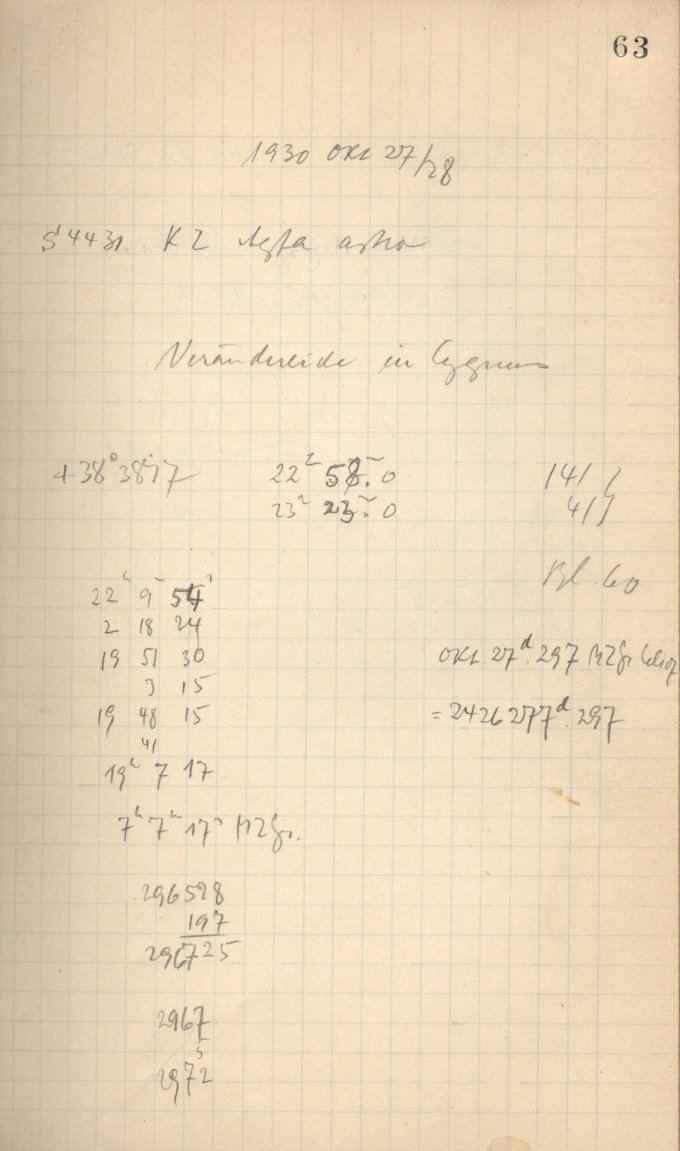 63
1930 Okt 27/28
S 4431 KZ Agfa astro
Veränderliche in Cygnus
+38° 3817 22ʰ 58.ᵐ0 141
23ʰ 23.ᵐ0 41
Bl. 60
22ʰ 9ᵐ 54ˢ
2 18 24
19 51 30
3 15
19 48 15
41
19ʰ 7 17
Okt. 27ᵈ.297 MZGr
= 2426277ᵈ.297
7ʰ 7ᵐ 17ˢ MZGr.
296528
197
296725
2967
5
2972